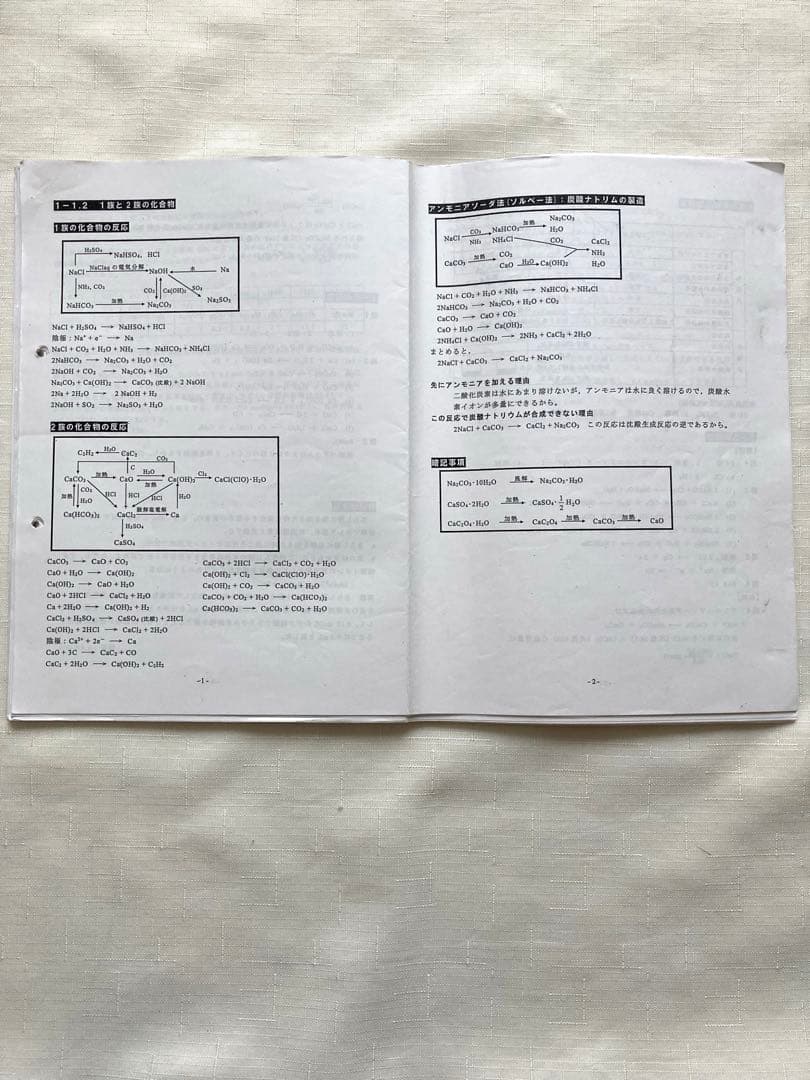 1-1.2 1族と2族の化合物
1族の化合物の反応
H₂SO₄
NaHSO₄, HCl
NaCl NaClaq の電気分解 NaOH 水 Na
NH₃, CO₂ CO₂ Ca(OH)₂ SO₂
NaHCO₃ 加熱 Na₂CO₃ Na₂SO₃
NaCl + H₂SO₄ → NaHSO₄ + HCl
陰極 : Na⁺ + e⁻ → Na
NaCl + CO₂ + H₂O + NH₃ → NaHCO₃ + NH₄Cl
2NaHCO₃ → Na₂CO₃ + H₂O + CO₂
2NaOH + CO₂ → Na₂CO₃ + H₂O
Na₂CO₃ + Ca(OH)₂ → CaCO₃ (比緩) + 2 NaOH
2Na + 2H₂O → 2 NaOH + H₂
2NaOH + SO₂ → Na₂SO₃ + H₂O
2族の化合物の反応
C₂H₂ H₂O CaC₂
C CO₂
CaCO₃ 加熱 CaO H₂O 加熱 Ca(OH)₂ Cl₂ CaCl(ClO)·H₂O
加熱 CO₂ H₂O HCl HCl HCl H₂O
Ca(HCO₃)₂ CaCl₂ 融解塩電解 Ca
H₂SO₄
CaSO₄
CaCO₃ → CaO + CO₂
CaO + H₂O → Ca(OH)₂
Ca(OH)₂ → CaO + H₂O
CaO + 2HCl → CaCl₂ + H₂O
Ca + 2H₂O → Ca(OH)₂ + H₂
CaCl₂ + H₂SO₄ → CaSO₄ (比緩) + 2HCl
Ca(OH)₂ + 2HCl → CaCl₂ + 2H₂O
陰極 : Ca²⁺ + 2e⁻ → Ca
CaO + 3C → CaC₂ + CO
CaC₂ + 2H₂O → Ca(OH)₂ + C₂H₂
CaCO₃ + 2HCl → CaCl₂ + CO₂ + H₂O
Ca(OH)₂ + Cl₂ → CaCl(ClO)·H₂O
Ca(OH)₂ + CO₂ → CaCO₃ + H₂O
CaCO₃ + CO₂ + H₂O → Ca(HCO₃)₂
Ca(HCO₃)₂ → CaCO₃ + CO₂ + H₂O
-1-
アンモニアソーダ法(ソルベー法) : 炭酸ナトリムの製造
NaCl CO₂ NH₃ NaHCO₃ 加熱 Na₂CO₃
NH₄Cl H₂O
CO₂ CaCl₂
CaCO₃ 加熱 CO₂ NH₃
CaO H₂O Ca(OH)₂ H₂O
NaCl + CO₂ + H₂O + NH₃ → NaHCO₃ + NH₄Cl
2NaHCO₃ → Na₂CO₃ + H₂O + CO₂
CaCO₃ → CaO + CO₂
CaO + H₂O → Ca(OH)₂
2NH₄Cl + Ca(OH)₂ → 2NH₃ + CaCl₂ + 2H₂O
まとめると,
2NaCl + CaCO₃ → CaCl₂ + Na₂CO₃
先にアンモニアを加える理由
二酸化炭素は水にあまり溶けないが, アンモニアは水に良く溶けるので, 炭酸水
素イオンが多量にできるから。
この反応で炭酸ナトリウムが合成できない理由
2NaCl + CaCO₃ → CaCl₂ + Na₂CO₃ この反応は沈殿生成反応の逆であるから。
暗記事項
Na₂CO₃·10H₂O 風解 Na₂CO₃·H₂O
CaSO₄·2H₂O 加熱 CaSO₄·1/2 H₂O
CaC₂O₄·H₂O 加熱 CaC₂O₄ 加熱 CaCO₃ 加熱 CaO
-2-